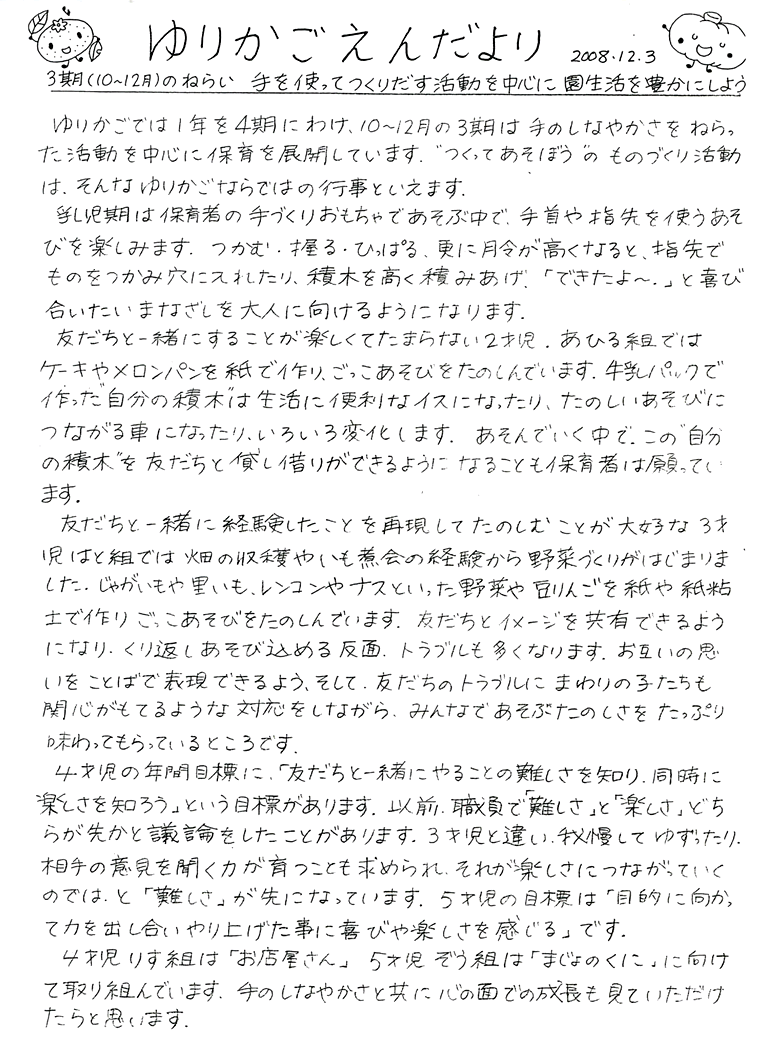 ゆりかごえんだより 2008.12.3
3期(10~12月)のねらい 手を使ってつくりだす活動を中心に 園生活を豊かにしよう
ゆりかごでは1年を4期にわけ、10~12月の3期は手のしなやかさをねらっ
た活動を中心に保育を展開しています。"つくってあそぼう"のものづくり活動
は、そんなゆりかごならではの行事といえます。
乳児期は保育者の手づくりおもちゃであそぶ中で、手首や指先を使うあそ
びを楽しみます。つかむ・握る・ひっぱる、更に月令が高くなると、指先で
ものをつかみ穴に入れたり、積木を高く積みあげ、「できたよ~。」と喜び
合いたいまなざしを大人に向けるようになります。
友だちと一緒にすることが楽しくてたまらない2才児。あひる組では
ケーキやメロンパンを紙で作り、ごっこあそびをたのしんでいます。牛乳パックで
作った"自分の積木"は生活に便利なイスになったり、たのしいあそびに
つながる車になったり、いろいろ変化します。あそんでいく中で、この"自分
の積木"を友だちと貸し借りができるようになることも保育者は願ってい
ます。
友だちと一緒に経験したことを再現してたのしむことが大好な3才
児はと組では畑の収穫やいも煮会の経験から野菜づくりがはじまりま
した。じゃがいもや里いも、レンコンやナスといった野菜や豆りんごを紙や紙粘
土で作りごっこあそびをたのしんでいます。友だちとイメージを共有できるよう
になり、くり返しあそび込める反面、トラブルも多くなります。お互いの思
いをことばで表現できるよう、そして、友だちのトラブルにまわりの子たちも
関心がもてるような対応をしながら、みんなであそぶたのしさをたっぷり
味わってもらっているところです。
4才児の年間目標に、「友だちと一緒にやることの難しさを知り、同時に
楽しさを知ろう」という目標があります。以前、職員で「難しさ」と「楽しさ」どち
らが先かと議論をしたことがあります。3才児と違い、我慢してゆずったり、
相手の意見を聞く力が育つことも求められ、それが楽しさにつながっていく
のでは、と「難しさ」が先になっています。5才児の目標は「目的に向かっ
て力を出し合いやり上げた事に喜びや楽しさを感じる」です。
4才児りす組は「お店屋さん」5才児ぞう組は「まじょのくに」に向け
て取り組んでいます。手のしなやかさと共に心の面での成長も見ていただけ
たらと思います。